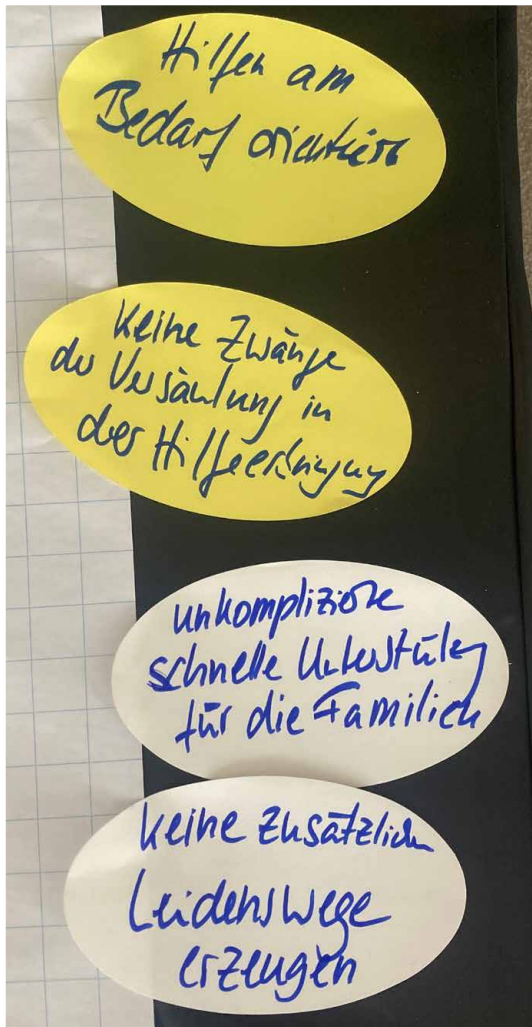 Hilfen am
Bedarf orientiert
Keine Zwänge
der Versäulung in
der Hilfeerbringung
unkomplizierte
schnelle Unterstützung
für die Familien
keine zusätzlichen
Leidenswege
erzeugen